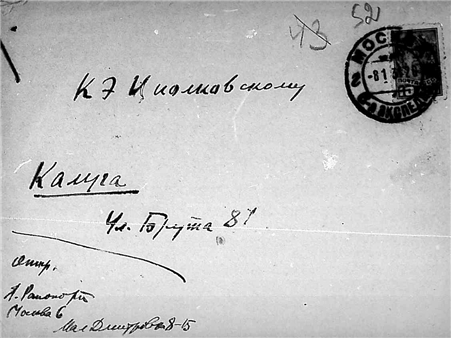 43
52
МОСКВА
К Э Циолковскому
Калуга
Ул. Брута 81
Отпр.
А. Рапопорт
Москва 6
Мал Дмитровка 8-15